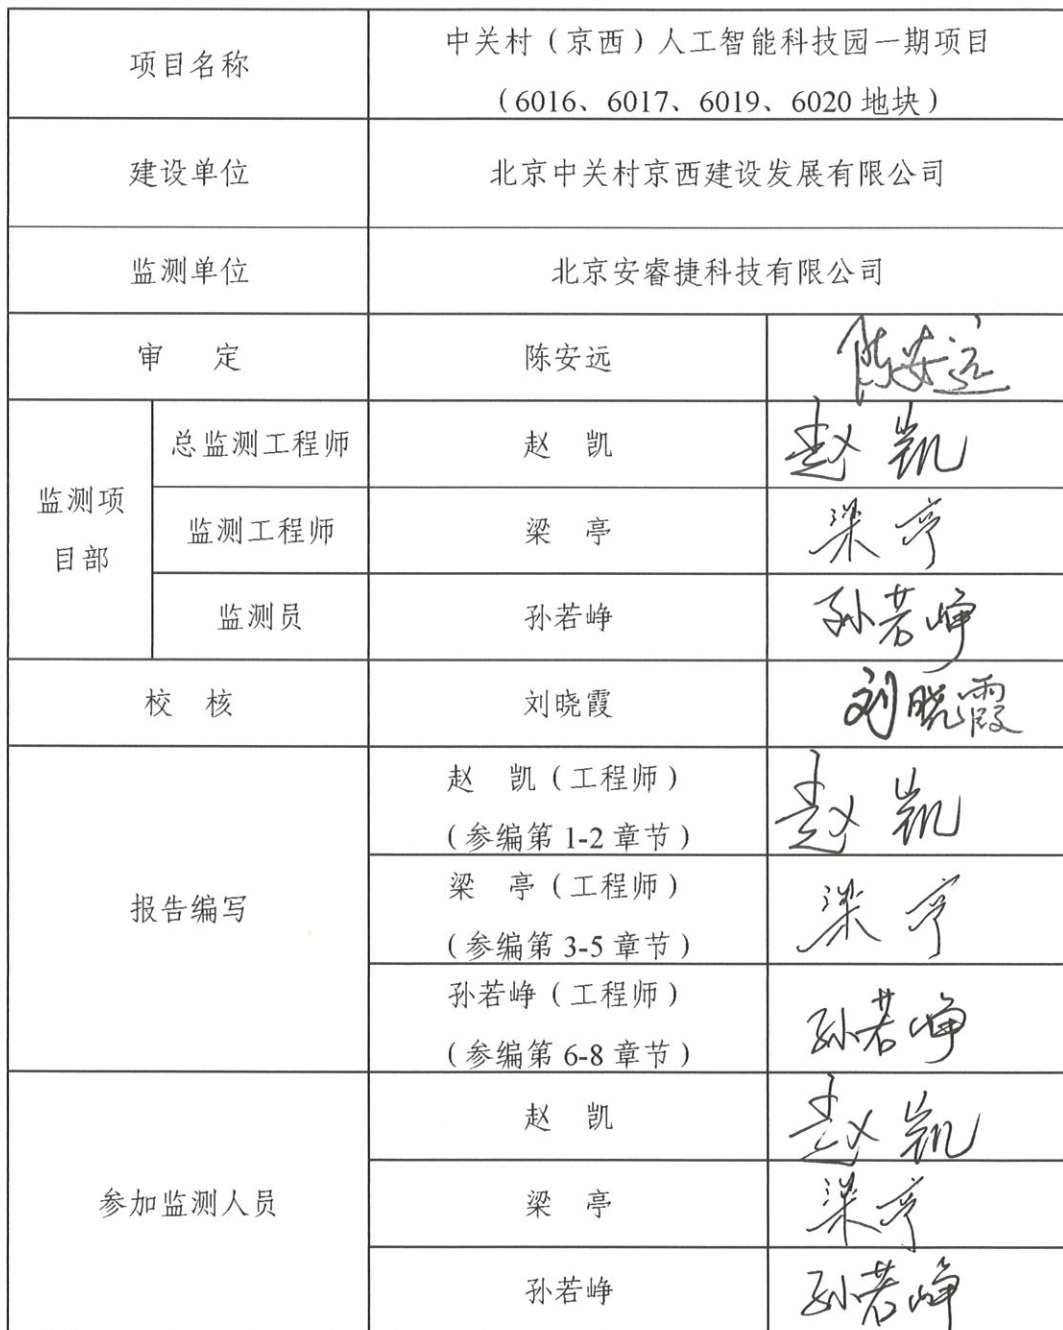 项目名称
中关村（京西）人工智能科技园一期项目
（6016、6017、6019、6020 地块）
建设单位
北京中关村京西建设发展有限公司
监测单位
北京安睿捷科技有限公司
审 定
陈安远
陈安远
监测项
目部
总监测工程师
赵 凯
赵凯
监测工程师
梁 亭
梁亭
监测员
孙若峥
孙若峥
校 核
刘晓霞
刘晓霞
报告编写
赵 凯（工程师）
（参编第 1-2 章节）
赵凯
梁 亭（工程师）
（参编第 3-5 章节）
梁亭
孙若峥（工程师）
（参编第 6-8 章节）
孙若峥
参加监测人员
赵 凯
赵凯
梁 亭
梁亭
孙若峥
孙若峥